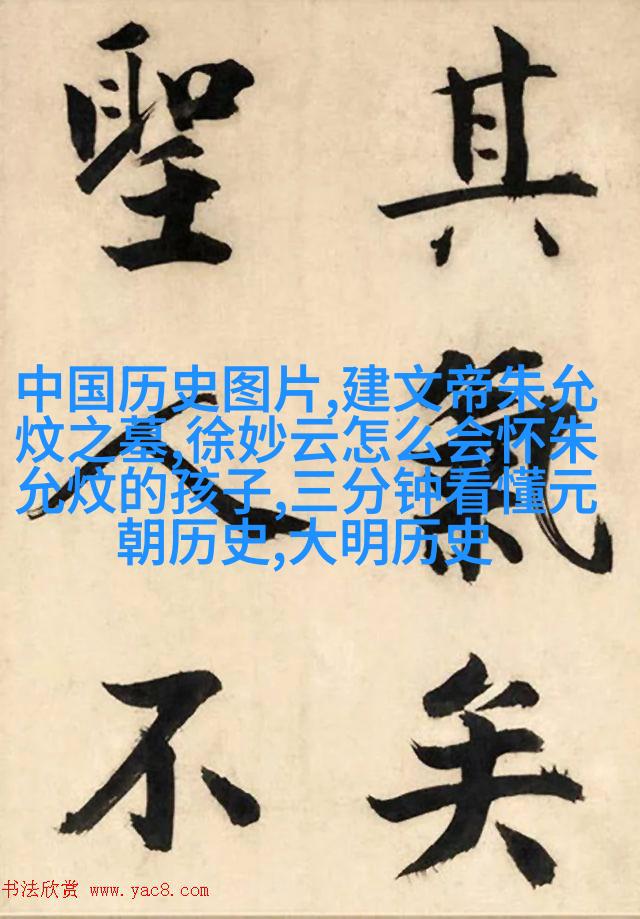 其氣矣
聖人不
中国历史图片,建文帝朱允
炆之墓,徐妙云怎么会怀朱
允炆的孩子,三分钟看懂元
朝历史,大明历史
书法欣赏 www.yac8.com